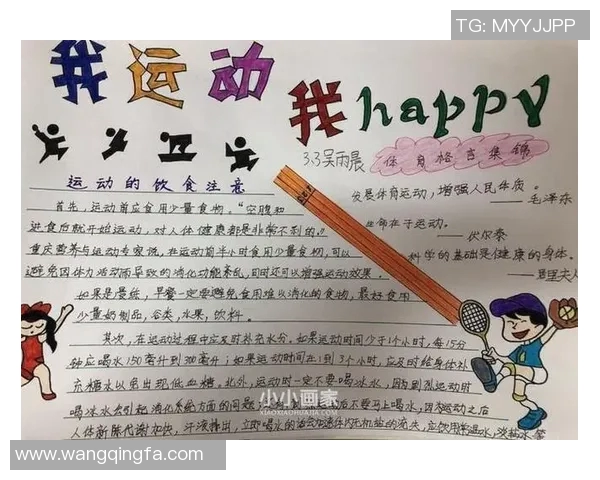 TG: MYYJJPP
我运动
我happy
3.3吴雨晨
体育格言集锦
运动的饮食注意
首先，运动前应食用少量食物。“空腹和
进食后就开始运动，对人体健康都是非常不利的。”
重庆营养与运动专家说，在运动前半小时食用少量食物，可以
避免因体力活动而导致的消化功能紊乱，同时还可以增强运动效果。
如果是晨练，早餐一定要避免食用难以消化的食物，最好食用
少量奶制品，谷类，水果，饮料。
其次，在运动过程中应及时补充水分。如果运动时间少于1个小时，每15分
钟应喝水150毫升到300毫升；如果运动时间在1到3个小时，应及时给身体补
充糖水以免出现低血糖。此外，运动时一定不要喝冰水，因为剧烈运动时
喝冰水会引起消化系统方面的问题。后不要马上喝水，因为运动之后
人体新陈代谢加快，汗液排出，立即喝水的话会加速体内无机盐的流失，应饮用常温水，淡盐水等
发展体育运动，增强人民体质。
——毛泽东
生命在于运动。
——伏尔泰
科学的基础是健康的身体。
——居里夫人
小小画家
XIAOXIAOHUAJIA.COM
www.wangqingfa.com